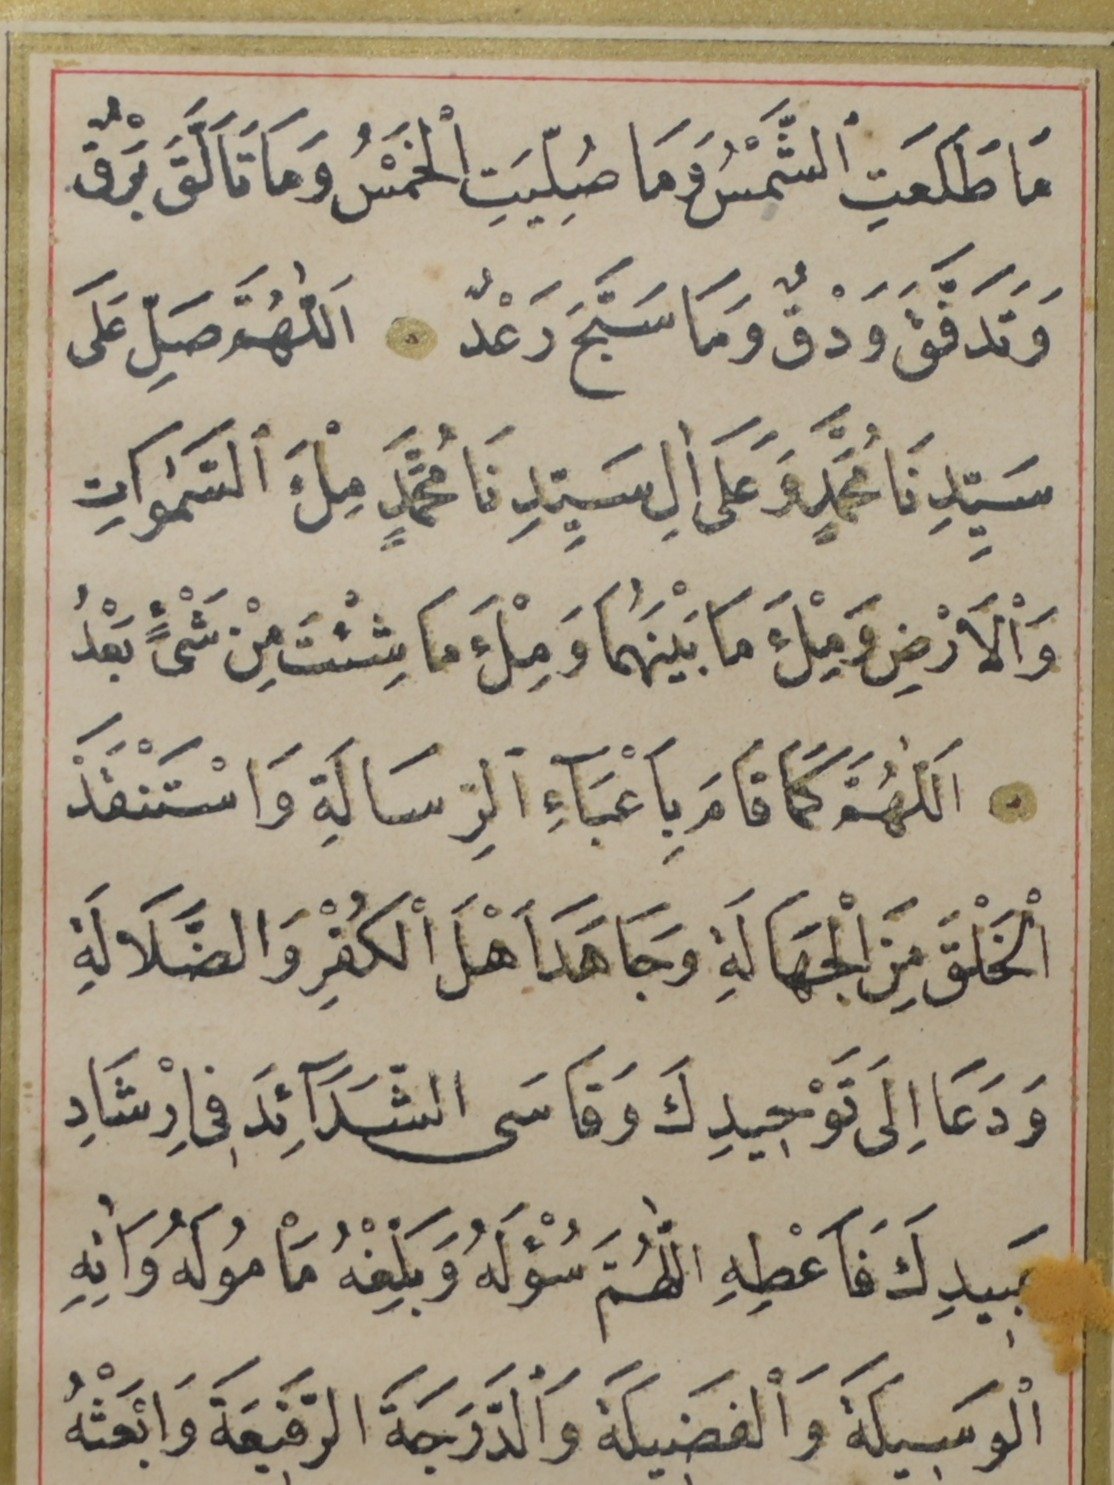 مَا طَلَعَتِ ٱلشَّمْسُ وَمَا صُلِّيَتِ الْخَمْسُ وَمَا تَاَلَّقَ بَرْقٌ
وَتَدَفَّقَ وَدْقٌ وَمَا سَبَّحَ رَعْدٌ ۞ اَللّٰهُمَّ صَلِّ عَلَى
سَيِّدِنَا مُحَمَّدٍ وَعَلَى اٰلِ سَيِّدِنَا مُحَمَّدٍ مِلْءَ ٱلسَّمٰوَاتِ
وَٱلْاَرْضِ وَمِلْءَ مَا بَيْنَهُمَا وَمِلْءَ مَا شِئْتَ مِنْ شَىْءٍ بَعْدُ
۞ اَللّٰهُمَّ كَمَا قَامَ بِاَعْبَآءِ ٱلرِّسَالَةِ وَاسْتَنْقَذَ
الْخَلْقَ مِنَ الْجَهَالَةِ وَجَاهَدَ اَهْلَ الْكُفْرِ وَالضَّلَالَةِ
وَدَعَا اِلَى تَوْحِيدِكَ وَقَاسَى الشَّدَآئِدَ فِى اِرْشَادِ
عَبِيدِكَ فَاَعْطِهِ اللّٰهُمَّ سُؤْلَهُ وَبَلِّغْهُ مَاْمُولَهُ وَاٰتِهِ
الْوَسِيلَةَ وَٱلْفَضِيلَةَ وَٱلدَّرَجَةَ الرَّفِيعَةَ وَابْعَثْهُ